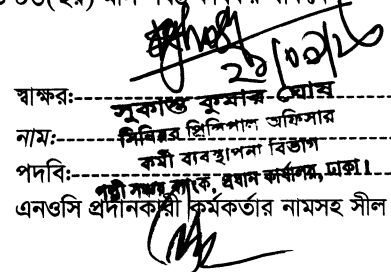 স্বাক্ষর:
সুকান্ত কুমার ঘোষ
নাম:
সিনিয়র প্রিন্সিপাল অফিসার
কর্মী ব্যবস্থাপনা বিভাগ
পদবি:
পল্লী সঞ্চয় ব্যাংক, প্রধান কার্যালয়, ঢাকা।
এনওসি প্রদানকারী কর্মকর্তার নামসহ সীল